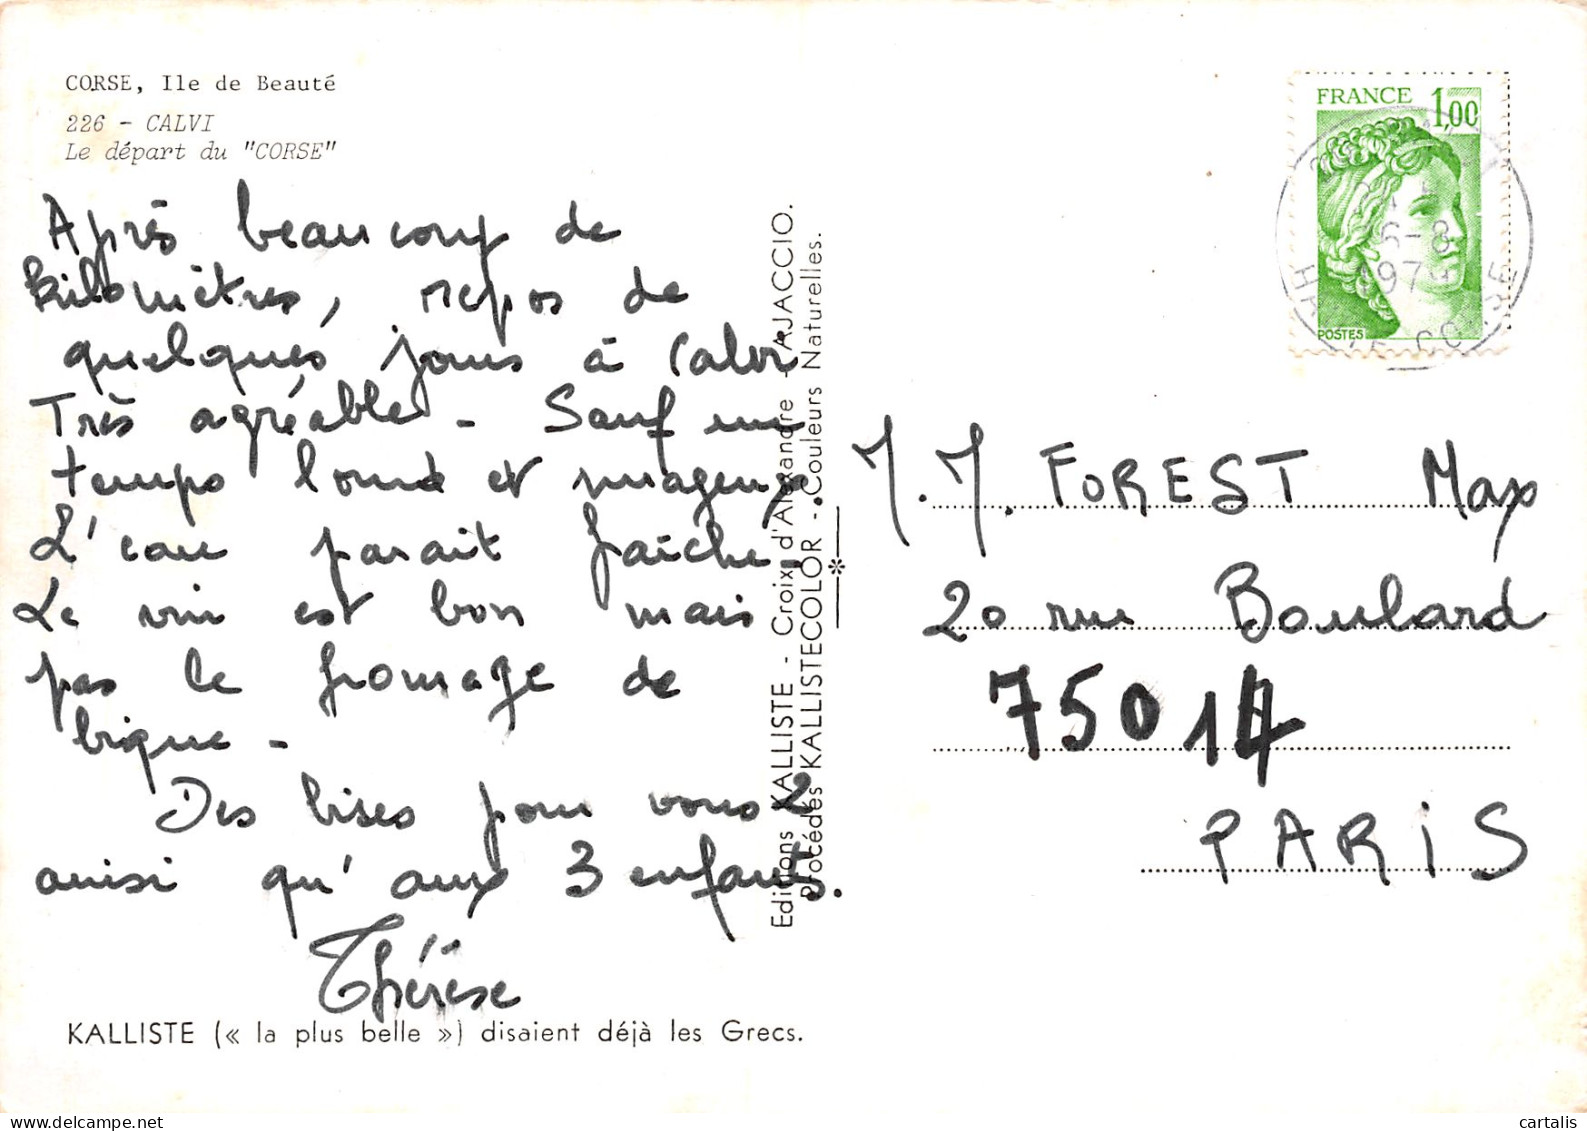 CORSE, Ile de Beauté
226 - CALVI
Le départ du "CORSE"
Après beaucoup de
kilomètres, repos de
quelques jours à Calvi
Très agréable - Sauf un
temps lourd et nuageux
L'eau parait fraîche,
Le vin est bon mais
pas le fromage de
bique -
Des bises pour vous 2
ainsi qu'aux 3 enfants.
Thérèse
KALLISTE (« la plus belle ») disaient déjà les Grecs.
Editions KALLISTE - Croix d'Alexandre - AJACCIO.
Procédés KALLISTECOLOR - Couleurs Naturelles.
FRANCE 1,00
POSTES
6-8
1979
HAUTE CORSE
J.J. FOREST Max
20 rue Boulard
75014
PARIS
cartalis
delcampe.net